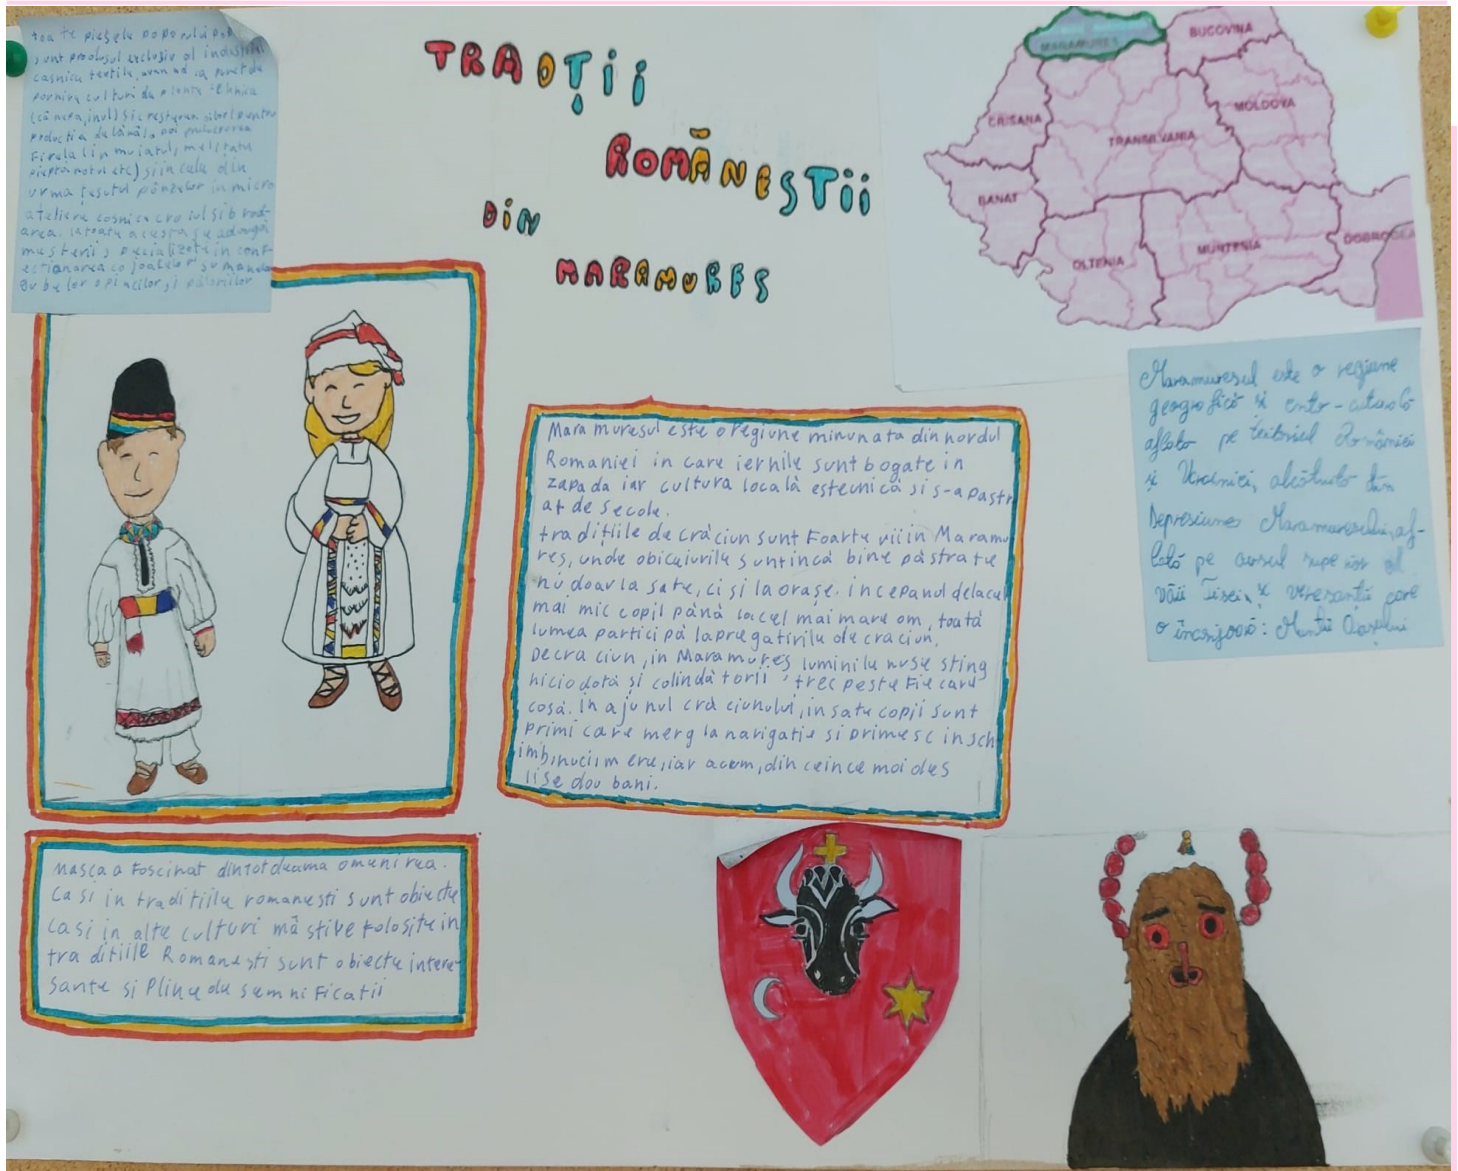 TRADȚII
ROMÂNEȘTII
DIN
MARAMUREȘ
toate piesele poporului
sunt produsul exclusiv al industriei
casnice textile, avand ca punct de
pornire culturi de plante tehnice
(cânepa, inul) si creșterea oilor pentru
productia de lână, apoi prelucrarea
Firela (in muiatul, melitatul
pieptanatul etc) și in cele din
urma țesutul pânzelor in micro
ateliere casnice croiul si brod-
area. la toate acestea se adaugă
mesterii specializate in conf-
ectionarea cojoacelor sumanelor
gubelor opincilor, si pălăriilor
MARAMUREȘ
BUCOVINA
CRIȘANA
MOLDOVA
TRANSILVANIA
BANAT
OLTENIA
MUNTENIA
DOBROGEA
Maramuresul este o regiune
geografică și etno-culturală
aflată pe teritoriul României
și Ucrainei, alcătuită din
Depresiunea Maramureșului, af-
lată pe cursul superior al
văii Tisei, și versanții care
o înconjoară: Munții Oașului
Mara muresul este o regiune minunata din nordul
Romaniei in care iernile sunt bogate in
zapada iar cultura locală este unică si s-a pastr
at de secole.
traditiile de crăciun sunt Foarte vii in Maramu
res, unde obiceiurile sunt incă bine păstrate
nu doar la sate, ci și la orașe. incepand de la cel
mai mic copil până la cel mai mare om, toată
lumea participă la pregatirile de craciun.
De cra ciun, in Mara mureș luminile nu se sting
niciodată și colindă torii, trec peste Fie care
casă. in aju nul cră ciunului, in sate copii sunt
primi care merg la navigatie si primesc in sch
imb, nuci, mere, iar acum, din ce in ce mai des
li se dau bani.
Masca a Foscinat dintotdeauna omenirea.
Ca si in traditiile romanesti sunt obiecte
ca si in alte culturi măstile folosite in
tra ditiile Romanești sunt obiecte intere-
sante si Pline de semni Ficatii